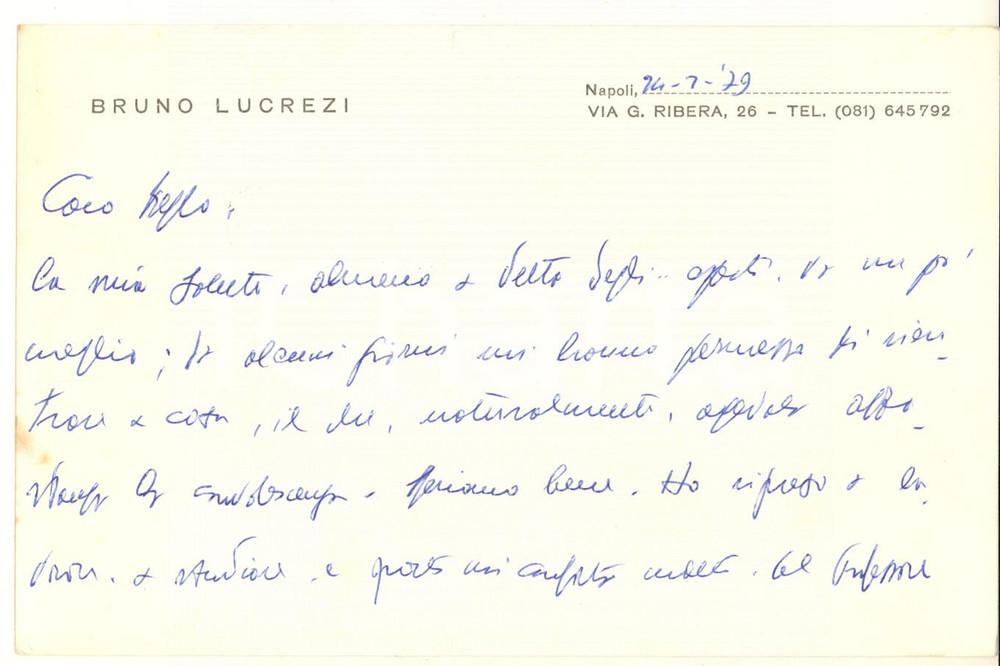 BRUNO LUCREZI
Napoli, 24-7-'79
VIA G. RIBERA, 26 – TEL. (081) 645792
Caro
la mia salute, almeno a detta degli esperti, va un po'
meglio; da alcuni giorni mi hanno permesso di rien-
trare a casa, il che, naturalmente, agevola abba-
stanza la convalescenza. Speriamo bene. Ho ripreso a la-
vorare, a studiare, e questo mi conforta molto. Il Professore